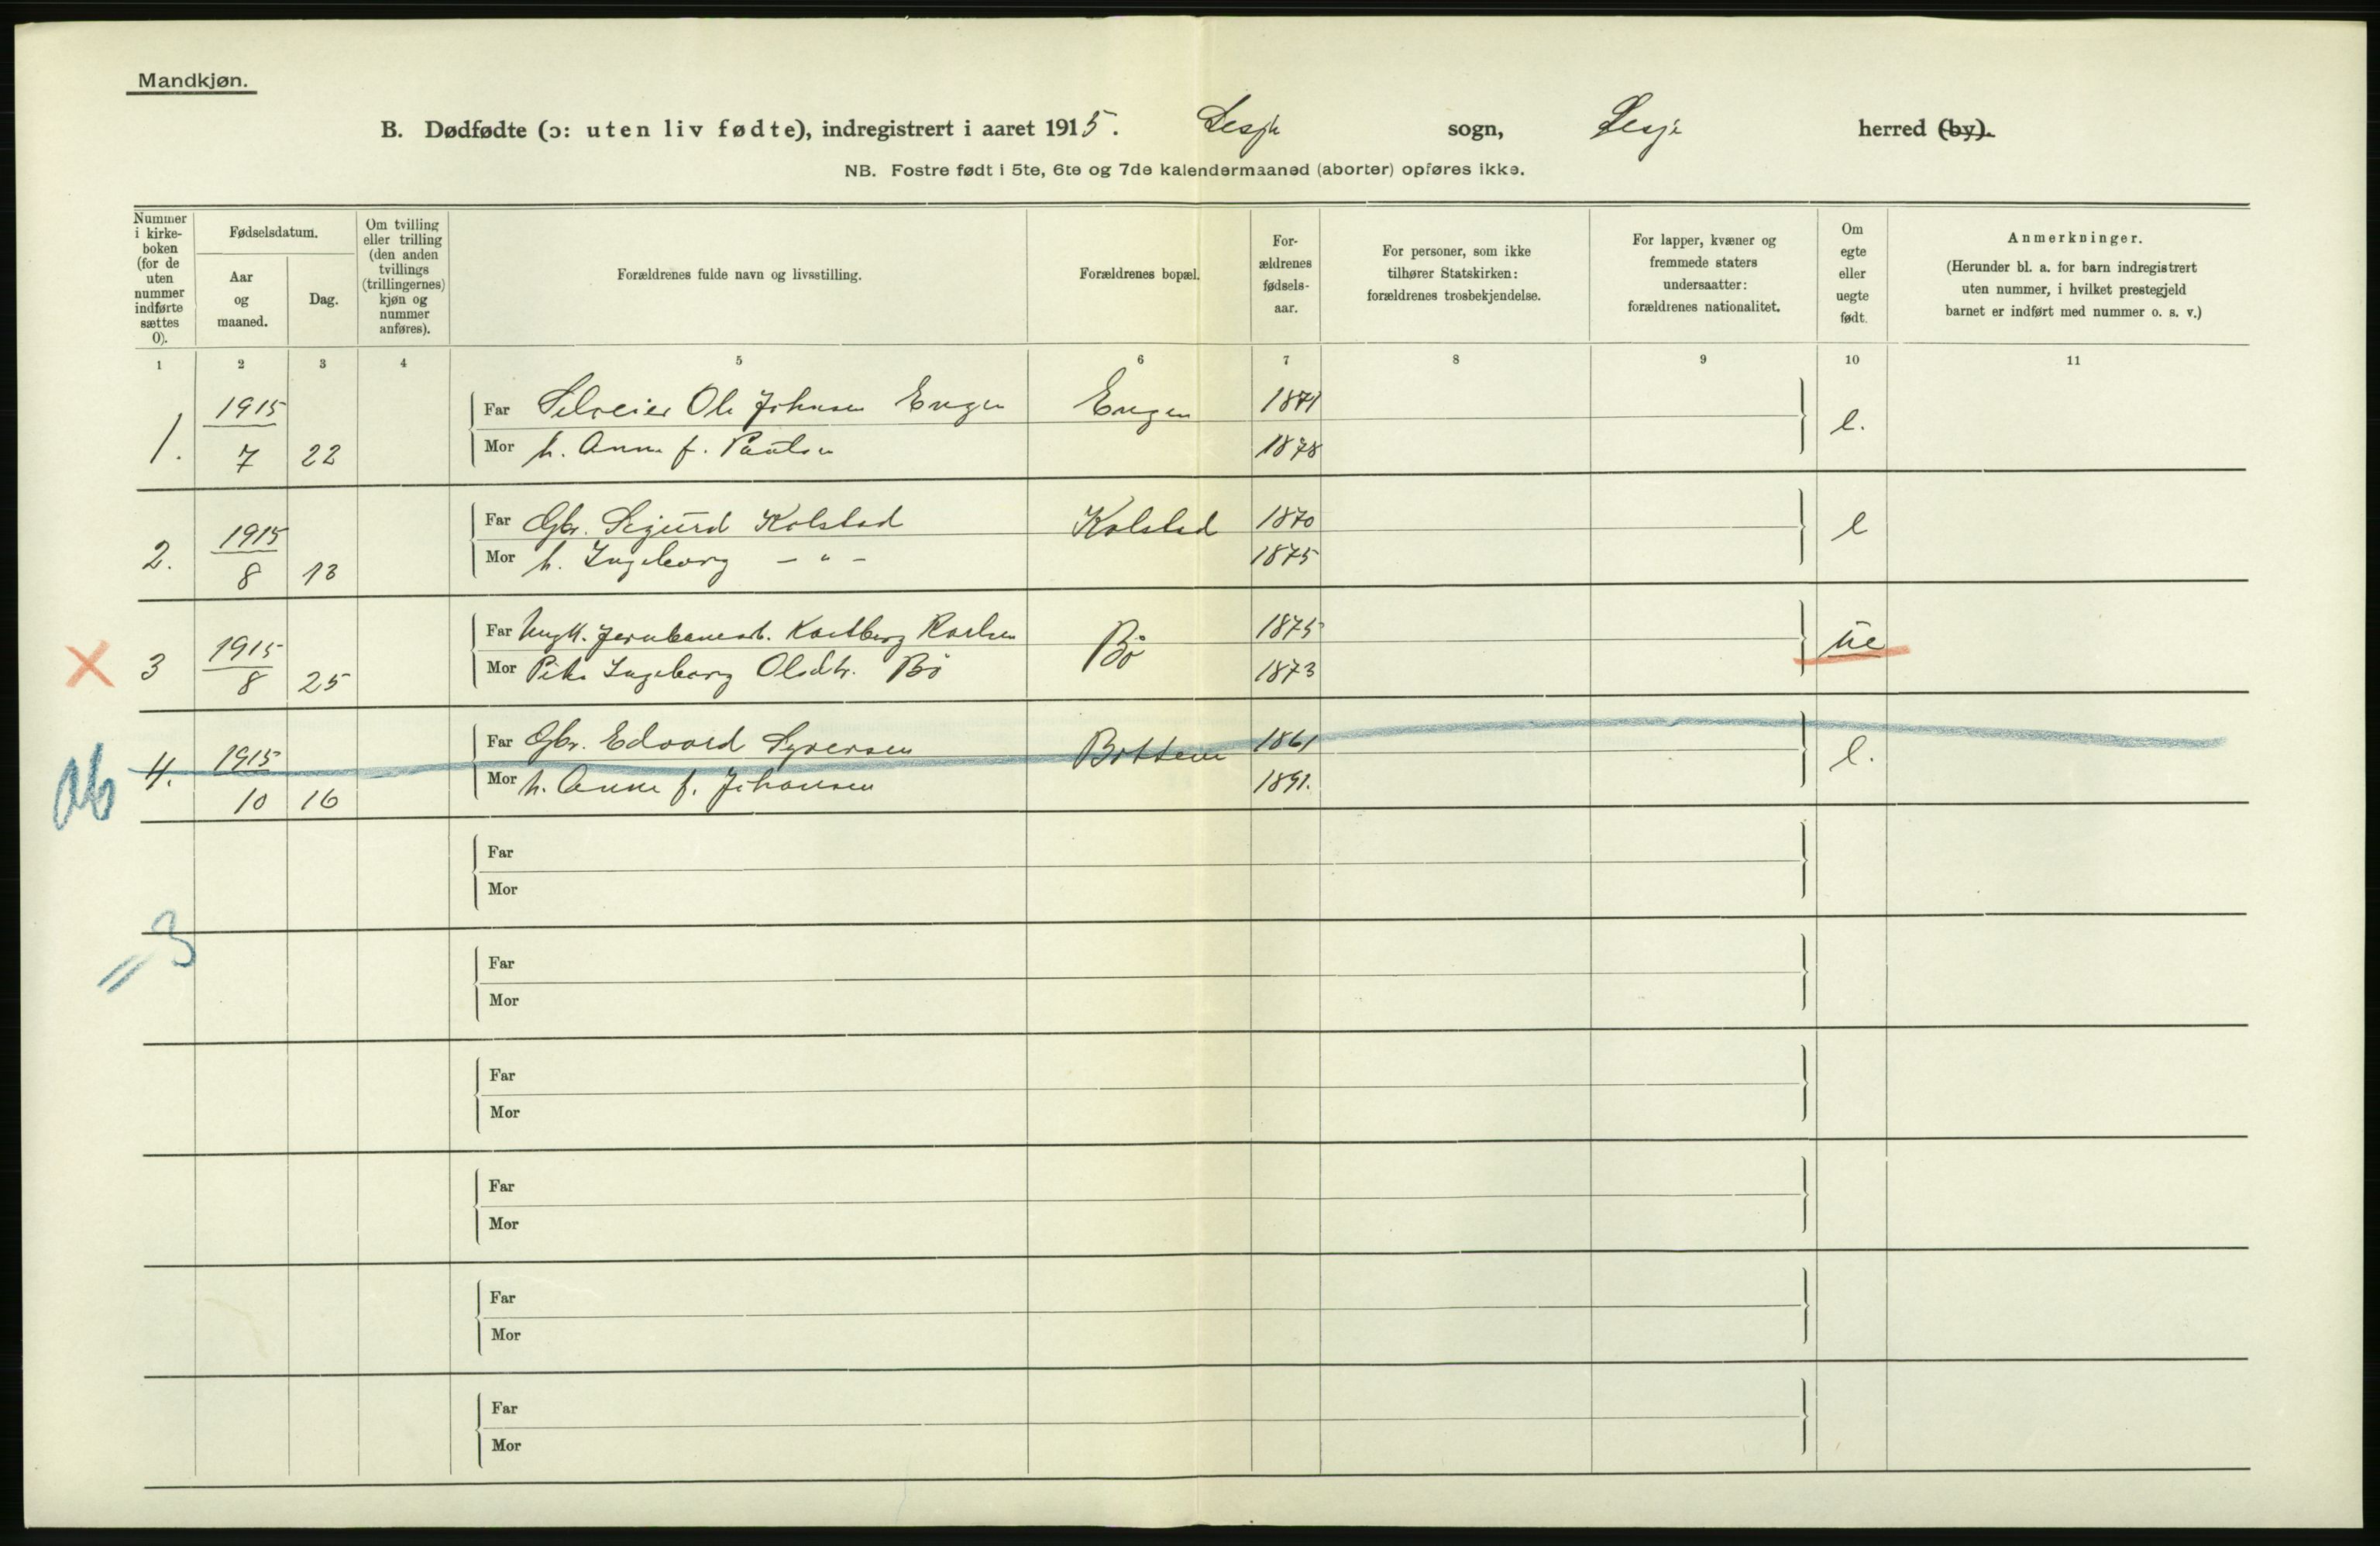 Mandkjøn.
B. Dødfødte (ɔ: uten liv fødte), indregistrert i aaret 1915. Lesje sogn, Lesje herred (by).
NB. Fostre født i 5te, 6te og 7de kalendermaaned (aborter) opføres ikke.
Nummer i kirke-boken (for de uten nummer indførte sættes 0).
Fødselsdatum.
Aar og maaned.
Dag.
Om tvilling eller trilling (den anden tvillings (trillingernes) kjøn og nummer anføres).
Forældrenes fulde navn og livsstilling.
Forældrenes bopæl.
For-ældrenes fødsels-aar.
For personer, som ikke tilhører Statskirken: forældrenes trosbekjendelse.
For lapper, kvæner og fremmede staters undersaatter: forældrenes nationalitet.
Om egte eller uegte født.
Anmerkninger.
(Herunder bl. a. for barn indregistrert uten nummer, i hvilket prestegjeld barnet er indført med nummer o. s. v.)
1 2 3 4 5 6 7 8 9 10 11
1. 1915 7 22 Far Selveier Ole Johnsen Engen Engen 1871 e.
Mor h. Anne f. Paulsen 1878
2. 1915 8 13 Far Gbr. Sigurd Kolstad Kolstad 1870 e
Mor h. Ingeborg - " - 1875
X 3 1915 8 25 Far Ungk. Jernbanearb. Karlsen Bö 1875 ue
Mor Pike Ingeborg Olsdtr. Bö 1873
ab 4. 1915 10 16 Far Gbr. Edvard Syversen Bottem 1861 e.
Mor h. Anne f. Johansen 1891.
Far
Mor
= 3
Far
Mor
Far
Mor
Far
Mor
Far
Mor
Far
Mor